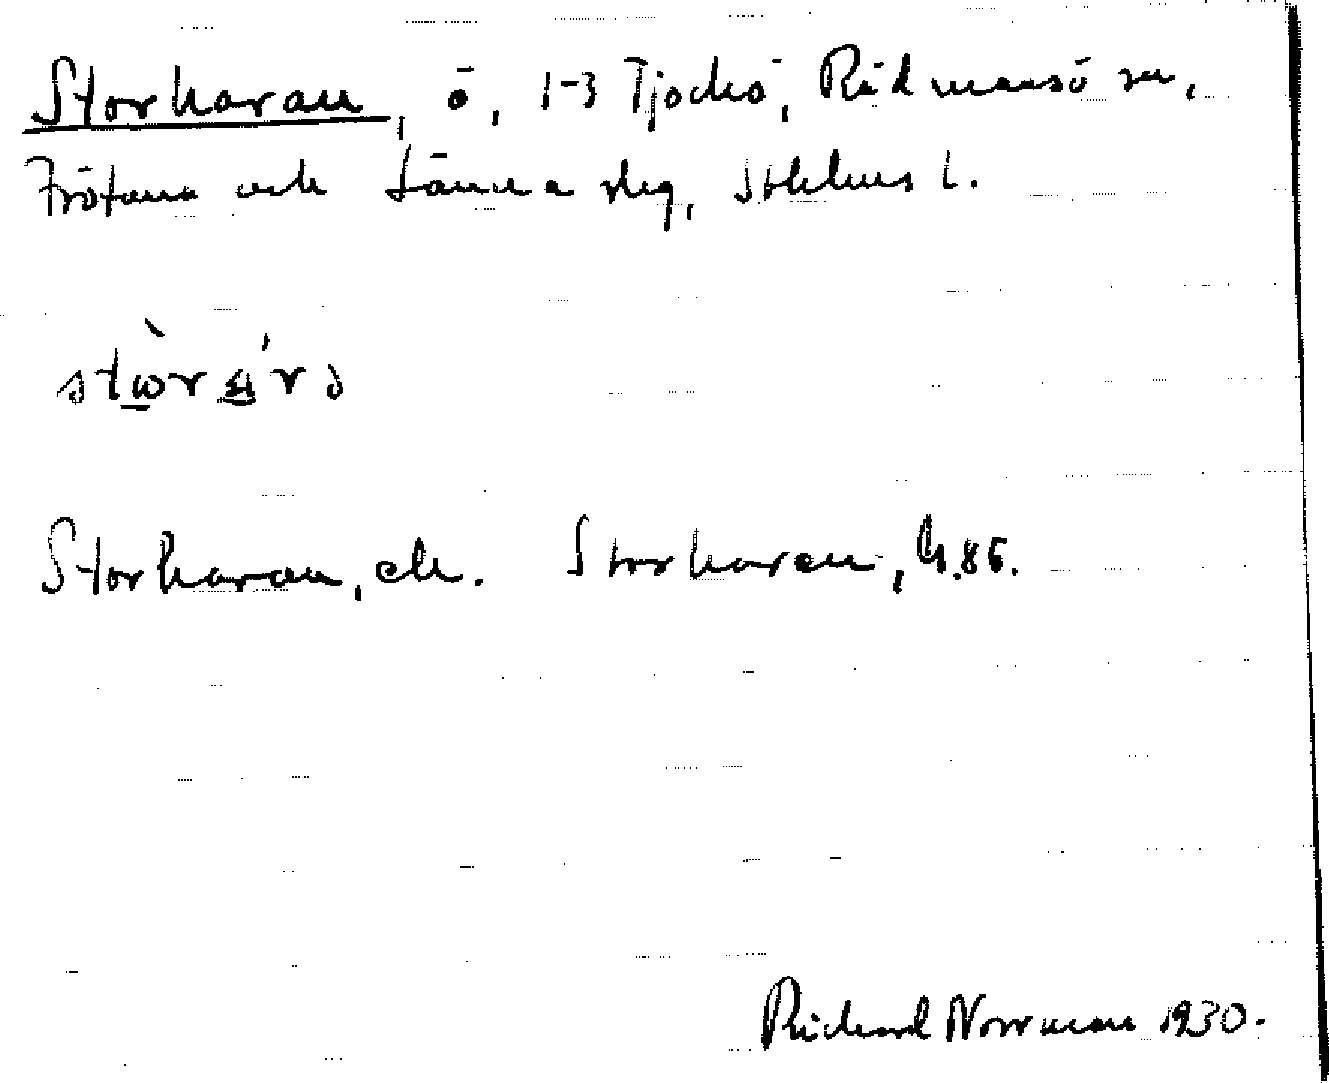 Storharan, ö, 1-3 Tjockö, Rådmansö sn,
Frötuna och Länna skg, Sthlms l.
Storharan, ek. Storharan, G.85.
Richard Norrman 1930.